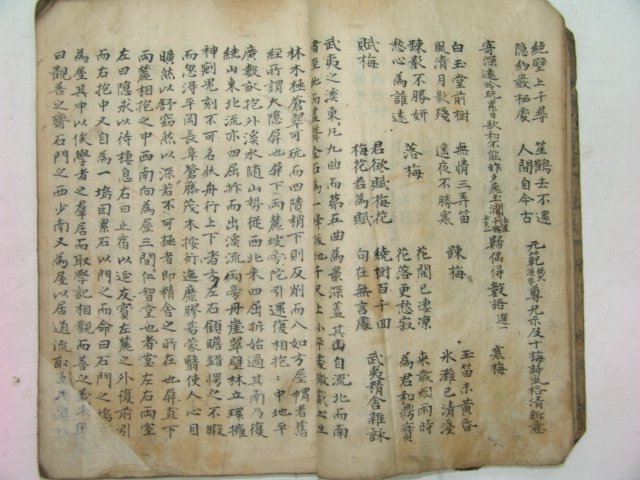 絶壁上千尋　笙鶴去不還
隐約巖栖處　人間自今古　元範尊兄示及十梅詩風格清新意
寄深遠吟玩累日欲和不能昨多處玉瀾歸偶得數語　選一　寒梅
白玉堂前樹　無情三弄笛　踈梅　玉笛未黄昏
風清月影殘　遥夜不勝寒　氷灘已清淺
踈影不勝妍　落梅　花開已凄凉　來歲烟雨時
愁心為誰遠　花落更愁寂　為君和鼎實
賦梅　君欲賦梅花　繞樹百千回　武夷精舍雜詠
梅花若為賦　句在無言處
武夷之溪東凡九曲而第五曲為最深盖其山自北而南
者至此而盡聳全石為一峰拔地千尺上小平處微戴土生
林木極蒼翠可玩而四隤稍下則反削而入如方屋帽者舊
經所謂大隱屏也屏下兩麓坡陁引還復相抱中地平
廣數畒抱外溪水随山勢從西北來四屈折始過其南乃復
繞山東北流亦四屈折而出溪流兩旁丹崖翠壁林立環擁
神剜鬼刻不可名狀舟行上下者方左右顧瞻錯愕之不暇
而忽得平岡長阜蒼藤茂木按衍迤靡膠葛蒙翳使人心目
曠然以舒窈然以深若不可極者即精舍之所在也屏直下
兩麓相抱之中西南向為屋三間仁智堂也者堂左右兩室
左曰隐求以待棲息右曰止宿以延友賓左麓之外復前引
而右抱中又自為一塢因累石以門之而命曰石門之塢
為屋其中以俟學者之羣居而取學記相觀而善之義命
曰觀善之齋石門之西少南又為屋以居道流取